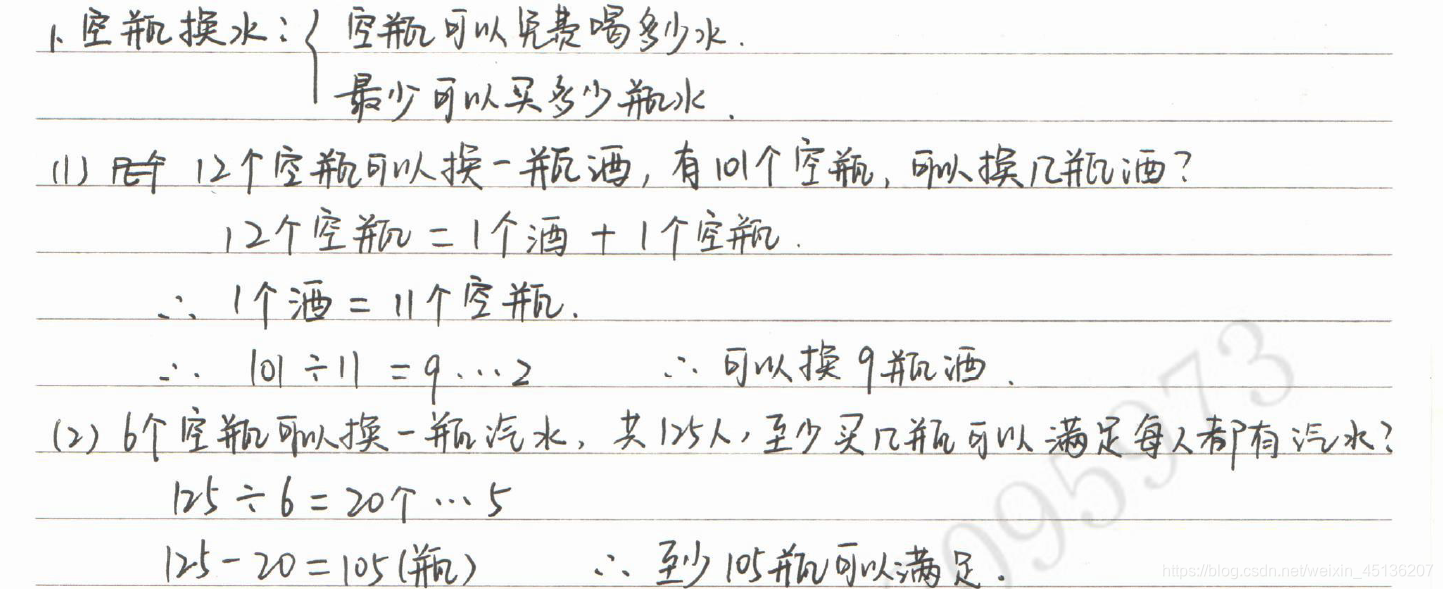 1. 空瓶换水:{ 空瓶可以免费喝多少水.
最少可以买多少瓶水.
(1) 12个空瓶可以换一瓶酒, 有101个空瓶, 可以换几瓶酒?
12个空瓶 = 1个酒 + 1个空瓶.
∴ 1个酒 = 11个空瓶.
∴ 101 ÷ 11 = 9 … 2 ∴ 可以换9瓶酒.
(2) 6个空瓶可以换一瓶汽水, 共125人, 至少买几瓶可以满足每人都有汽水?
125 ÷ 6 = 20个 … 5
125 - 20 = 105(瓶) ∴ 至少105瓶可以满足.
095973
https://blog.csdn.net/weixin_45136207